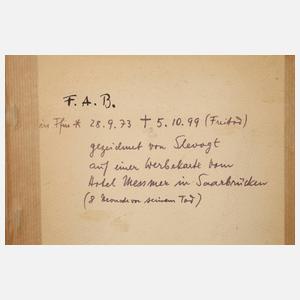 F. A. B.
in Ffm * 28.9.73 † 5.10.99 (Freitod)
gezeichnet von Slevogt
auf einer Werbekarte vom
Hotel Messmer in Saarbrücken
(8 Monate vor seinem Tod)